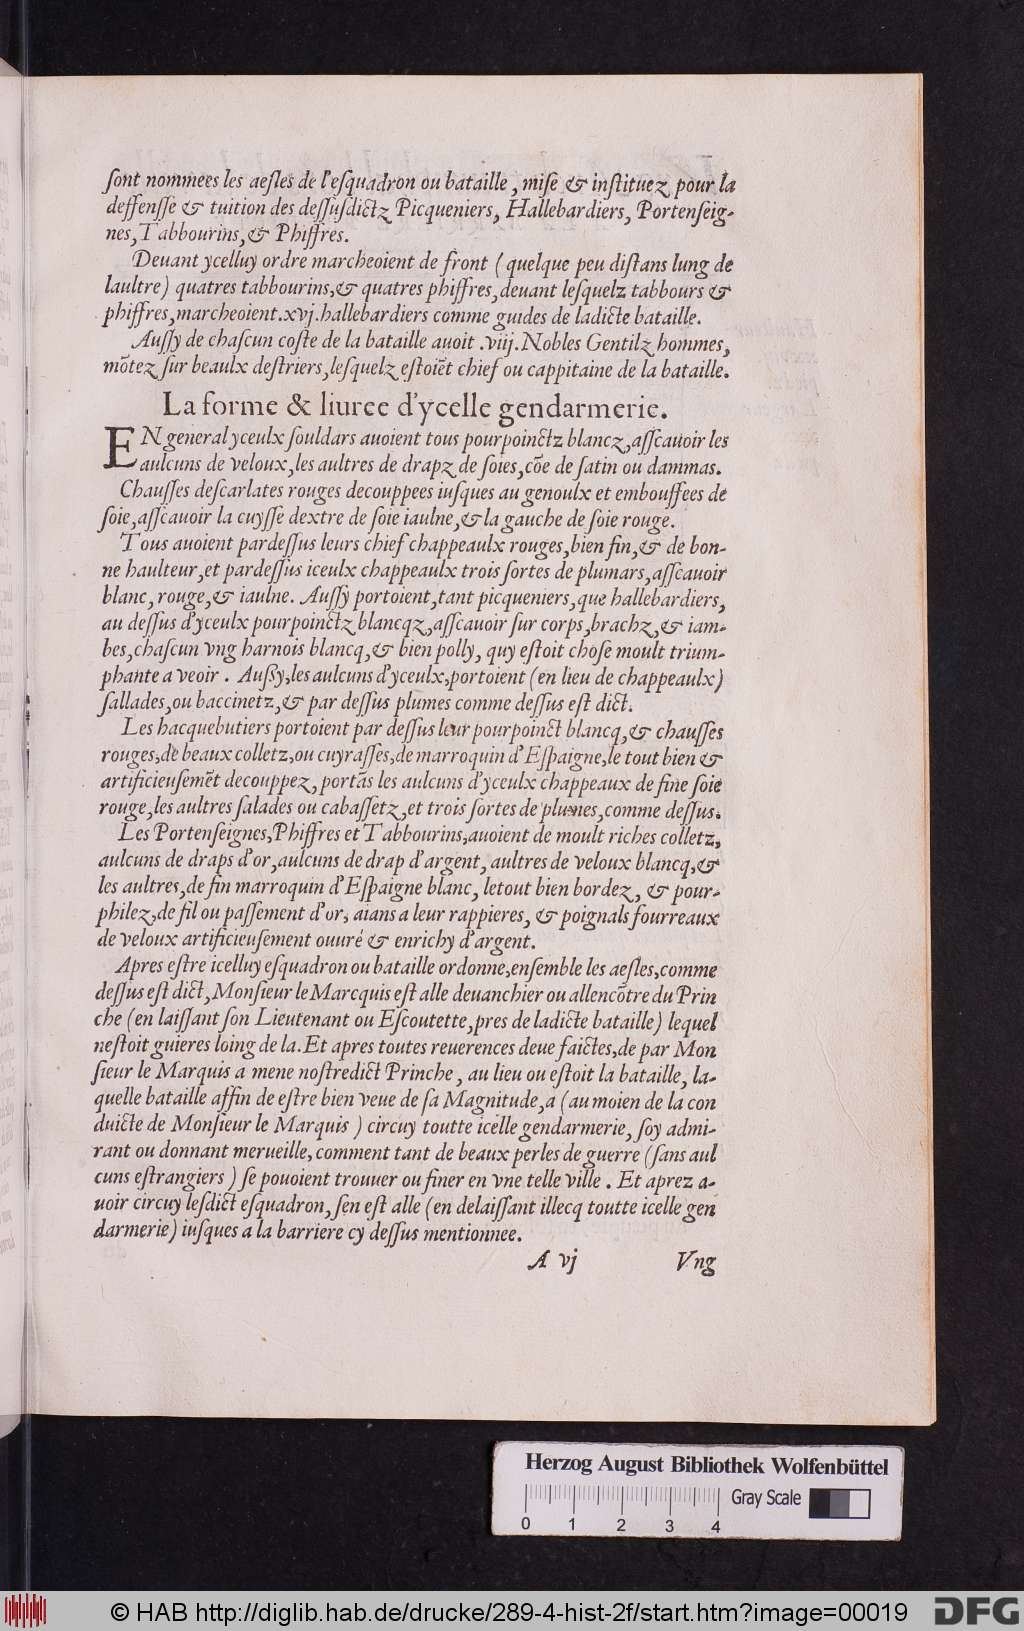 ſont nommees les aeſles de l'eſquadron ou bataille, miſe & inſtituez pour la
deffenſſe & tuition des deſſuſdictz Picqueniers, Hallebardiers, Portenſeig-
nes, Tabbourins, & Phiffres.
Deuant ycelluy ordre marcheoient de front (quelque peu diſtans lung de
laultre) quatres tabbourins, & quatres phiffres, deuant leſquelz tabbours &
phiffres, marcheoient .xvj. hallebardiers comme guides de ladicte bataille.
Auſſy de chaſcun coſte de la bataille auoit .viij. Nobles Gentilz hommes,
mõtez ſur beaulx deſtriers, leſquelz eſtoiẽt chief ou cappitaine de la bataille.
La forme & liuree d'ycelle gendarmerie.
EN general yceulx ſouldars auoient tous pourpoinctz blancz, aſſcauoir les
aulcuns de veloux, les aultres de drapz de ſoies, cõe de ſatin ou dammas.
Chauſſes deſcarlates rouges decouppees iuſques au genoulx et embouffees de
ſoie, aſſcauoir la cuyſſe dextre de ſoie iaulne, & la gauche de ſoie rouge.
Tous auoient pardeſſus leurs chief chappeaulx rouges, bien fin, & de bon-
ne haulteur, et pardeſſus iceulx chappeaulx trois ſortes de plumars, aſſcauoir
blanc, rouge, & iaulne. Auſſy portoient, tant picqueniers, que hallebardiers,
au deſſus d'yceulx pourpoinctz blancqz, aſſcauoir ſur corps, brachz, & iam-
bes, chaſcun vng harnois blancq, & bien polly, quy eſtoit choſe moult trium-
phante a veoir. Auſſy, les aulcuns d'yceulx, portoient (en lieu de chappeaulx)
ſallades, ou baccinetz, & par deſſus plumes comme deſſus eſt dict.
Les hacquebutiers portoient par deſſus leur pourpoinct blancq, & chauſſes
rouges, de beaux colletz, ou cuyraſſes, de marroquin d'Eſpaigne, le tout bien &
artificieuſemẽt decouppez, portãs les aulcuns d'yceulx chappeaux de fine ſoie
rouge, les aultres ſalades ou cabaſſetz, et trois ſortes de plumes, comme deſſus.
Les Portenſeignes, Phiffres et Tabbourins, auoient de moult riches colletz,
aulcuns de draps d'or, aulcuns de drap d'argent, aultres de veloux blancq, &
les aultres, de fin marroquin d'Eſpaigne blanc, letout bien bordez, & pour-
philez, de fil ou paſſement d'or, aians a leur rappieres, & poignals fourreaux
de veloux artificieuſement ouuré & enrichy d'argent.
Apres eſtre icelluy eſquadron ou bataille ordonne, enſemble les aeſles, comme
deſſus eſt dict, Monſieur le Marcquis eſt alle deuanchier ou allencõtre du Prin
che (en laiſſant ſon Lieutenant ou Eſcoutette, pres de ladicte bataille) lequel
neſtoit guieres loing de la. Et apres toutes reuerences deue faictes, de par Mon
ſieur le Marquis a mene noſtredict Prinche, au lieu ou eſtoit la bataille, la-
quelle bataille affin de eſtre bien veue de ſa Magnitude, a (au moien de la con
duicte de Monſieur le Marquis) circuy toutte icelle gendarmerie, ſoy admi-
rant ou donnant merueille, comment tant de beaux perles de guerre (ſans aul
cuns eſtrangiers) ſe pouoient trouuer ou finer en vne telle ville. Et aprez a-
uoir circuy leſdict eſquadron, ſen eſt alle (en delaiſſant illecq toutte icelle gen
darmerie) iuſques a la barriere cy deſſus mentionnee.
A vj Vng
Herzog August Bibliothek Wolfenbüttel
Gray Scale
0 1 2 3 4
© HAB http://diglib.hab.de/drucke/289-4-hist-2f/start.htm?image=00019
DFG